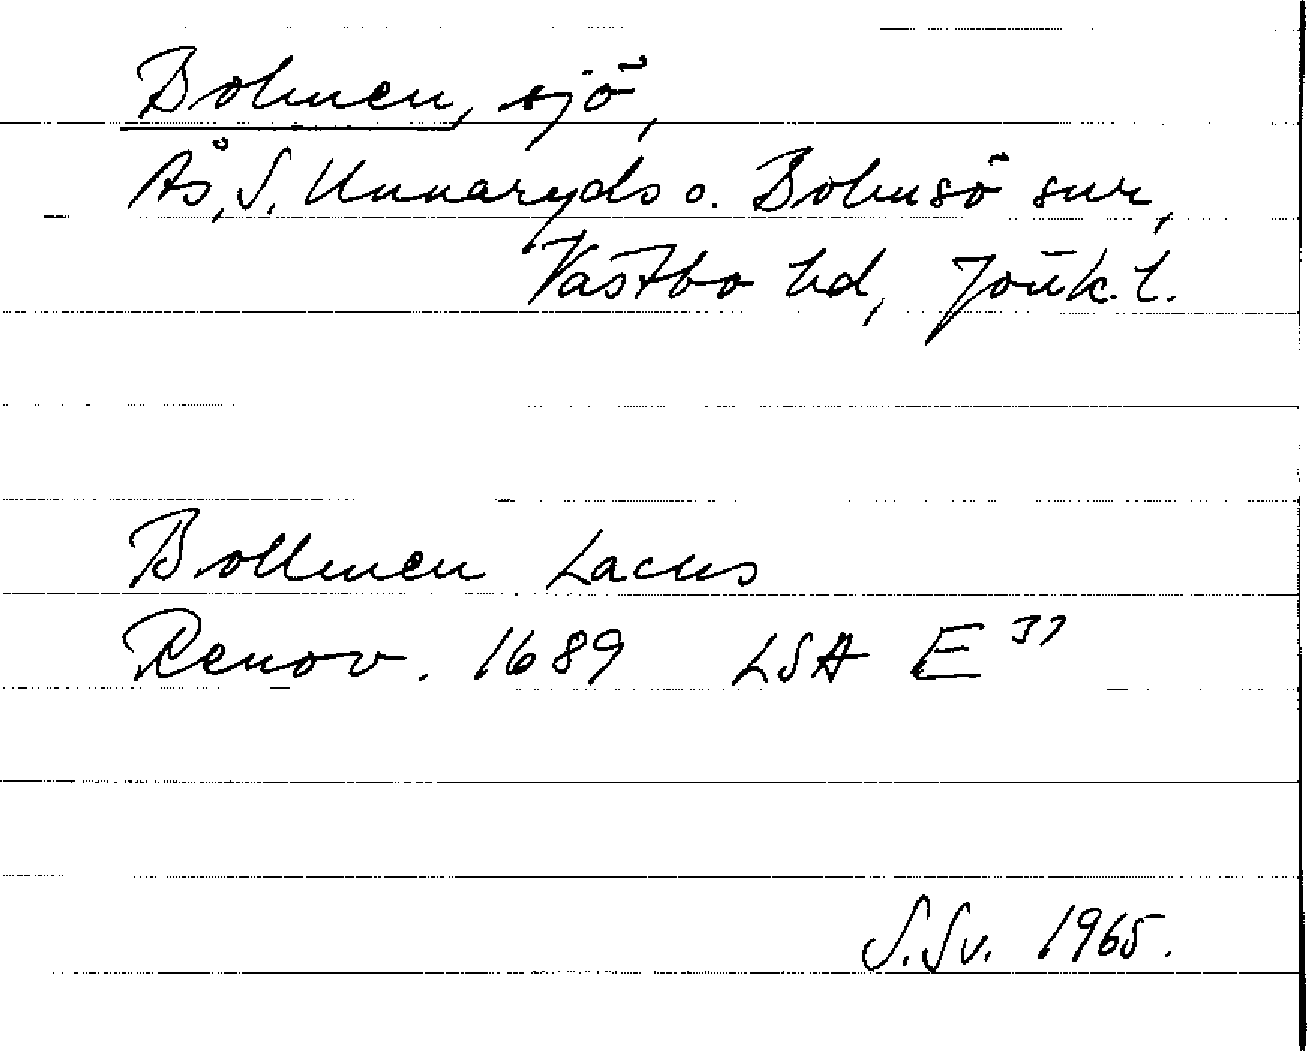 Bolmen, sjö,
Ås, S. Unnaryds o. Bolmsö snr,
Västbo hd, Jönk. l.
Bollmen Lacus
Renov. 1689 LSA E 37
S. Sv. 1965.